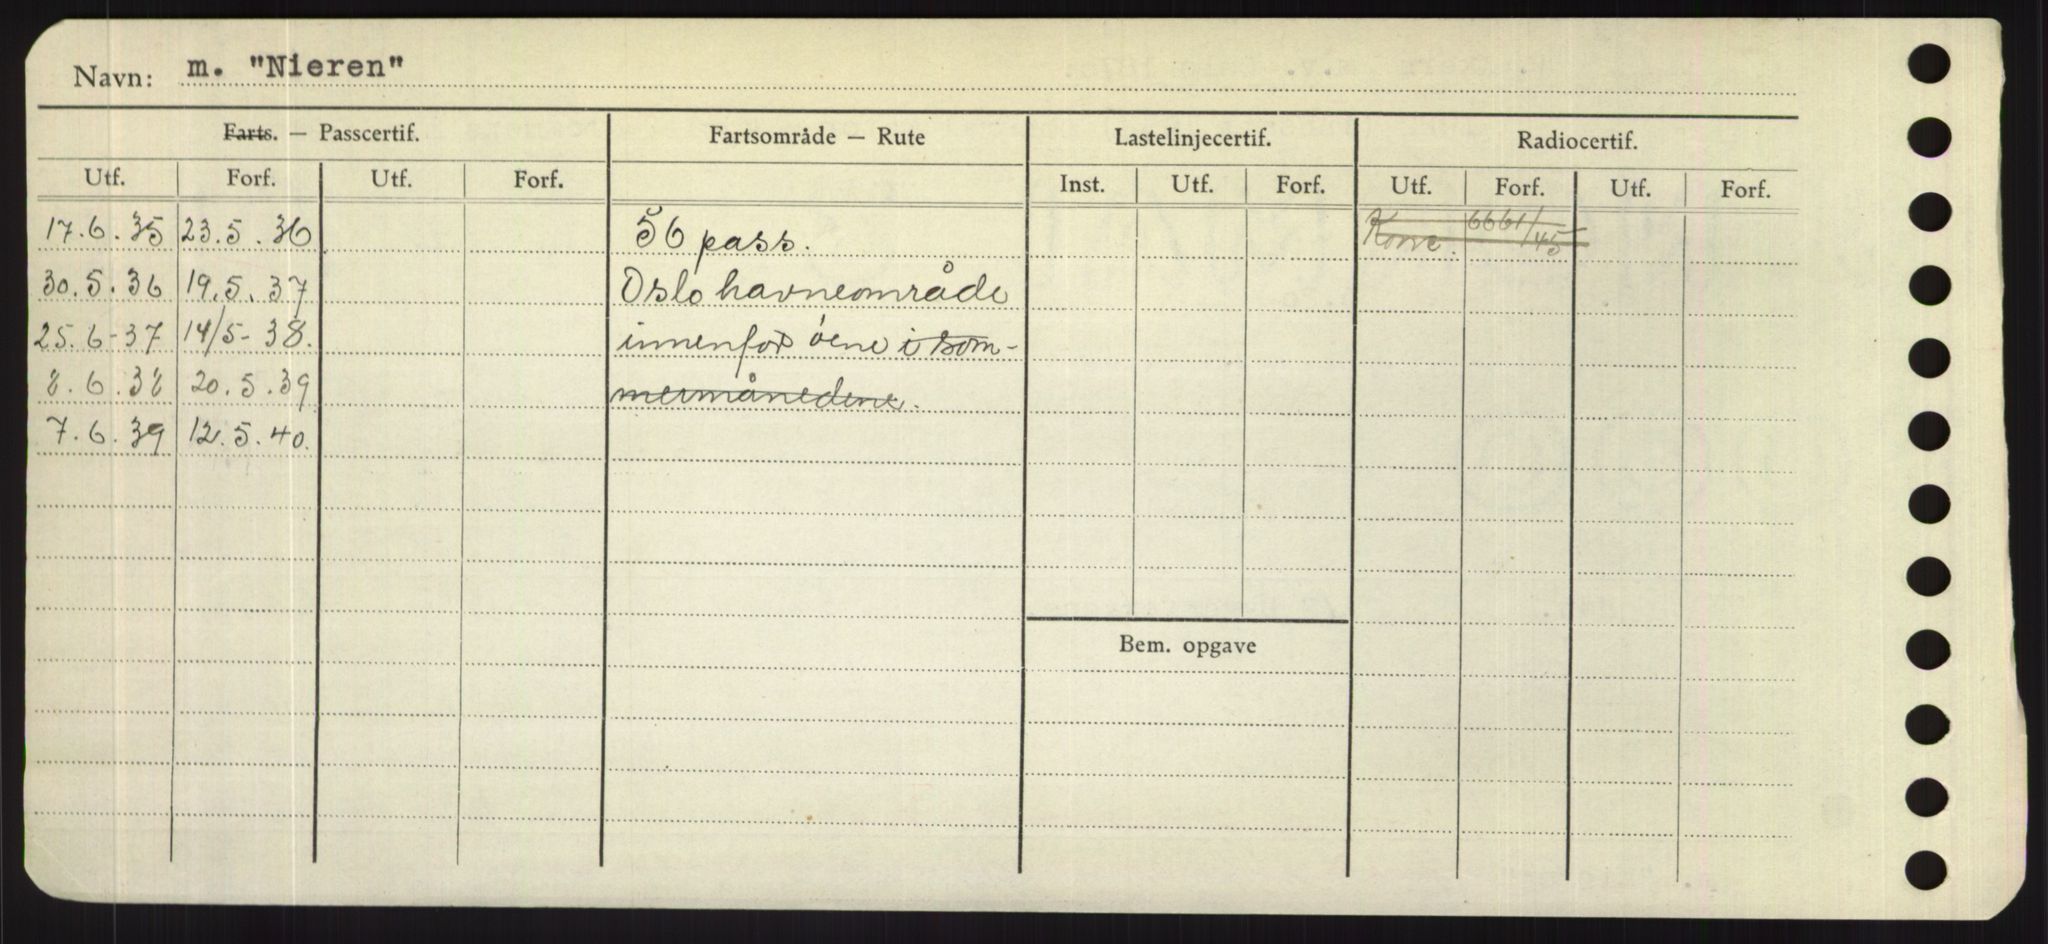 Navn: m. "Nieren"
Farts. — Passcertif. Fartsområde — Rute Lastelinjecertif. Radiocertif.
Utf. Forf. Utf. Forf. Inst. Utf. Forf. Utf. Forf. Utf. Forf.
17.6.35 23.5.36 56 pass. 6661/45
30.5.36 19.5.37 Oslo havneområde
25.6-37 14/5-38. innenfor öene i som-
8.6.38 20.5.39 mermånedene.
7.6.39 12.5.40.
Bem. opgave